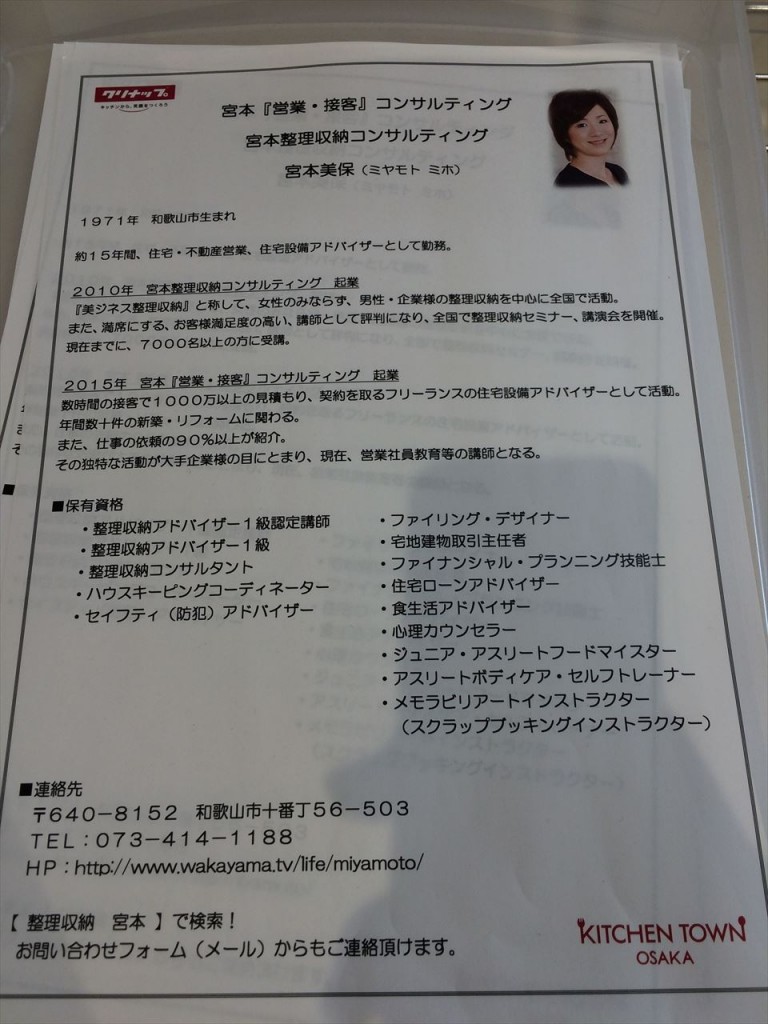 クリナップ
キッチンから、笑顔をつくろう
宮本『営業・接客』コンサルティング
宮本整理収納コンサルティング
宮本美保（ミヤモト ミホ）
１９７１年　和歌山市生まれ
約１５年間、住宅・不動産営業、住宅設備アドバイザーとして勤務。
２０１０年　宮本整理収納コンサルティング　起業
『美ジネス整理収納』と称して、女性のみならず、男性・企業様の整理収納を中心に全国で活動。
また、満席にする、お客様満足度の高い、講師として評判になり、全国で整理収納セミナー、講演会を開催。
現在までに、７０００名以上の方に受講。
２０１５年　宮本『営業・接客』コンサルティング　起業
数時間の接客で１０００万以上の見積もり、契約を取るフリーランスの住宅設備アドバイザーとして活動。
年間数十件の新築・リフォームに関わる。
また、仕事の依頼の９０％以上が紹介。
その独特な活動が大手企業様の目にとまり、現在、営業社員教育等の講師となる。
■保有資格
・整理収納アドバイザー１級認定講師
・整理収納アドバイザー１級
・整理収納コンサルタント
・ハウスキーピングコーディネーター
・セイフティ（防犯）アドバイザー
・ファイリング・デザイナー
・宅地建物取引主任者
・ファイナンシャル・プランニング技能士
・住宅ローンアドバイザー
・食生活アドバイザー
・心理カウンセラー
・ジュニア・アスリートフードマイスター
・アスリートボディケア・セルフトレーナー
・メモラビリアートインストラクター
（スクラップブッキングインストラクター）
■連絡先
〒６４０－８１５２　和歌山市十番丁５６－５０３
ＴＥＬ：０７３－４１４－１１８８
ＨＰ：http://www.wakayama.tv/life/miyamoto/
【 整理収納　宮本 】で検索！
お問い合わせフォーム（メール）からもご連絡頂けます。
KITCHEN TOWN
OSAKA